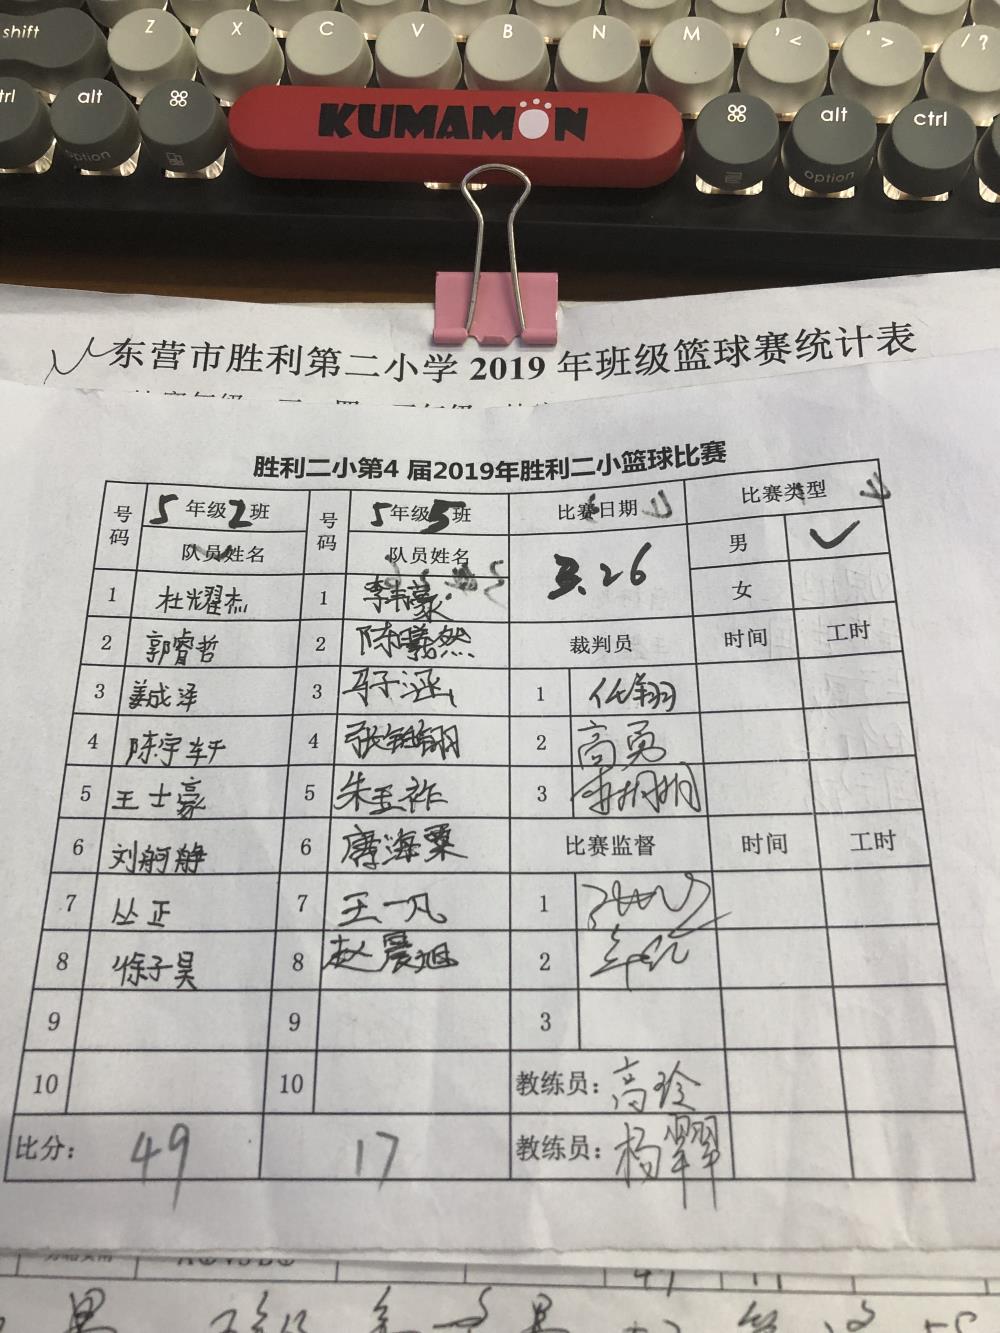 shift Z X C V B N M , < . > / ?
ctrl alt ⌘ ⌘ alt ctrl
option option
KUMAMON
东营市胜利第二小学 2019 年班级篮球赛统计表
胜利二小第4 届2019年胜利二小篮球比赛
号码 5年级2班 号码 5年级5班 比赛日期 比赛类型
队员姓名 队员姓名 3.26 男 ✓
女
1 杜耀杰 1 李
2 郭睿哲 2 陈曦然 裁判员 时间 工时
3 姜成泽 3 马子涵 1 任翔
4 陈宇轩 4 张 翔 2 高勇
5 王士豪 5 朱玉祚 3 李明明
6 刘 静 6 唐海粟 比赛监督 时间 工时
7 丛正 7 王一凡 1
8 徐子昊 8 赵晨旭 2
9 9 3
10 10 教练员: 高玲
比分: 49 17 教练员: 杨翠翠